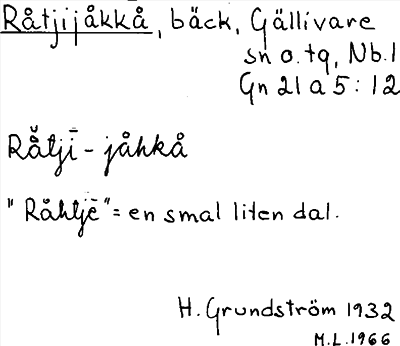 Råtjijåkkå, bäck, Gällivare
sn o. tq, Nb.l
Gn 21 a 5 : 12
Rå̆tjī - jåhkå
"Råhtjē" = en smal liten dal.
H. Grundström 1932
M.L. 1966